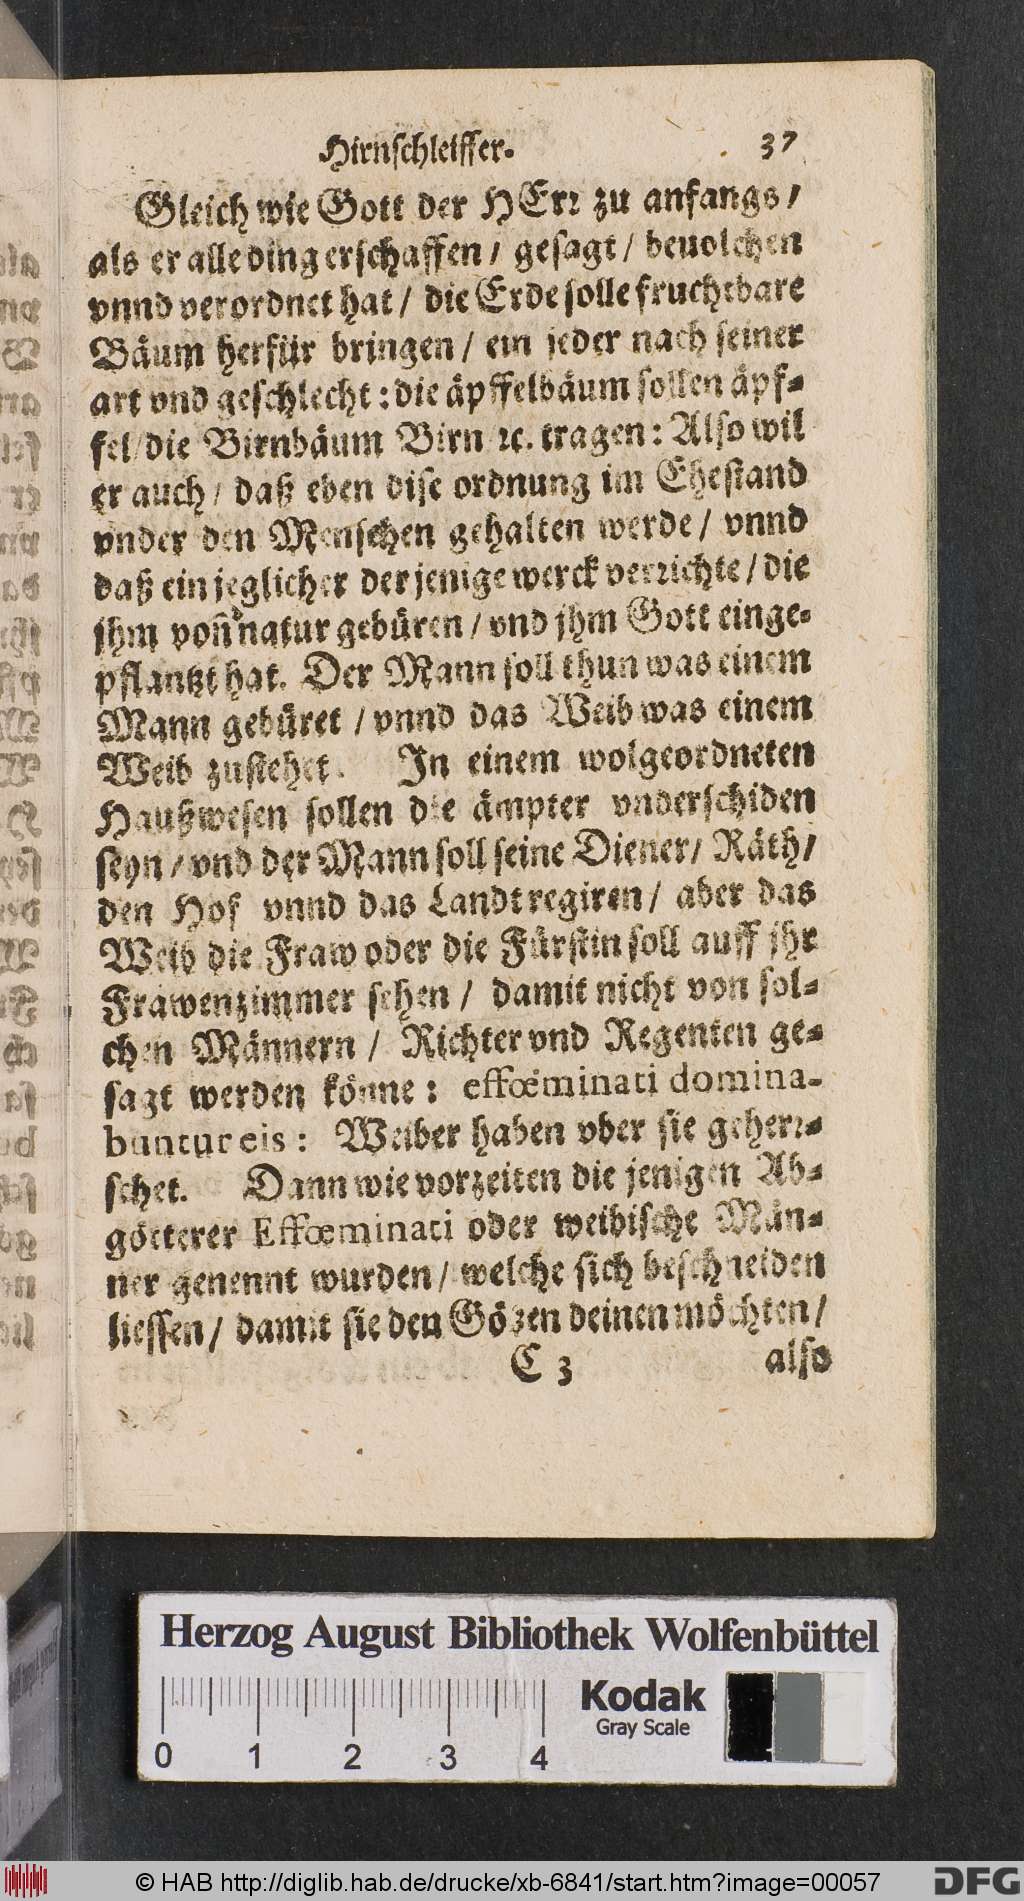 Hirnſchleiffer. 37
Gleich wie Gott der HErꝛ zu anfangs /
als er alle ding erſchaffen / geſagt / beuolchen
vnnd verordnet hat / die Erde ſolle fruchtbare
Bäum herfür bringen / ein jeder nach ſeiner
art vnd geſchlecht : die äpffelbäum ſollen äpf⸗
fel / die Birnbäum Birn ꝛc. tragen : Alſo wil
er auch / daß eben diſe ordnung im Eheſtand
vnder den Menſchen gehalten werde / vnnd
daß ein jeglicher der jenige werck verꝛichte / die
jhm von natur gebüren / vnd jhm Gott einge⸗
pflantzt hat. Der Mann ſoll thun was einem
Mann gebüret / vnnd das Weib was einem
Weib zuſtehet. In einem wolgeordneten
Haußweſen ſollen die ämpter vnderſchiden
ſeyn / vnd der Mann ſoll ſeine Diener / Räth /
den Hof vnnd das Landt regiren / aber das
Weib die Fraw oder die Fürſtin ſoll auff jhr
Frawenzimmer ſehen / damit nicht von ſol⸗
chen Männern / Richter vnd Regenten ge⸗
ſagt werden könne : effœminati domina-
buntur eis : Weiber haben vber ſie geherꝛ⸗
ſchet. Dann wie vorzeiten die jenigen Ab⸗
götterer Effœminati oder weibiſche Män⸗
ner genennt wurden / welche ſich beſchneiden
lieſſen / damit ſie den Götzen deinen möchten /
C 3 alſo
Herzog August Bibliothek Wolfenbüttel
Kodak
Gray Scale
0 1 2 3 4
© HAB http://diglib.hab.de/drucke/xb-6841/start.htm?image=00057
DFG